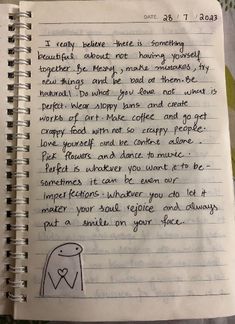 DATE: 28/7/2023
I really believe there is something
beautiful about not having yourself
together. Be Messy, make mistakes, try
new things and be bad at them. Be
natural! Do what you love not what is
perfect. Wear sloppy buns and create
works of art. Make coffee and go get
crappy food with not so crappy people.
Love yourself and be content alone.
Pick flowers and dance to music.
Perfect is whatever you want it to be -
sometimes it can be even our
imperfections. Whatever you do let it
make your soul rejoice and always
put a smile on your face.